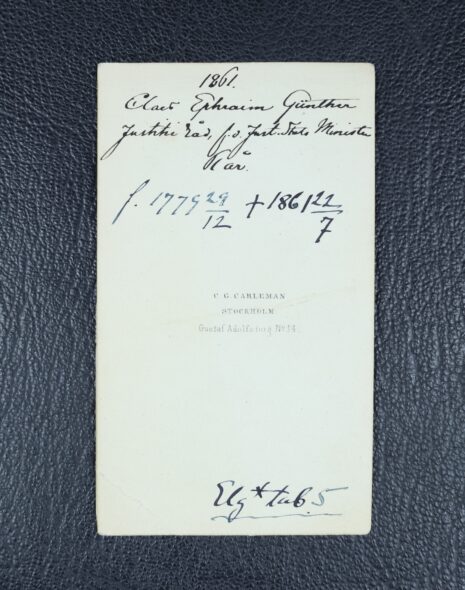 1861.
Claes Ephraim Günther
Justitie Råd, f.d. Just. Stats Minister
f. 1779 29/12 + 1861 22/7
C G CARLEMAN
STOCKHOLM
Gustaf Adolfs torg No 14.
Elg* tab. 5